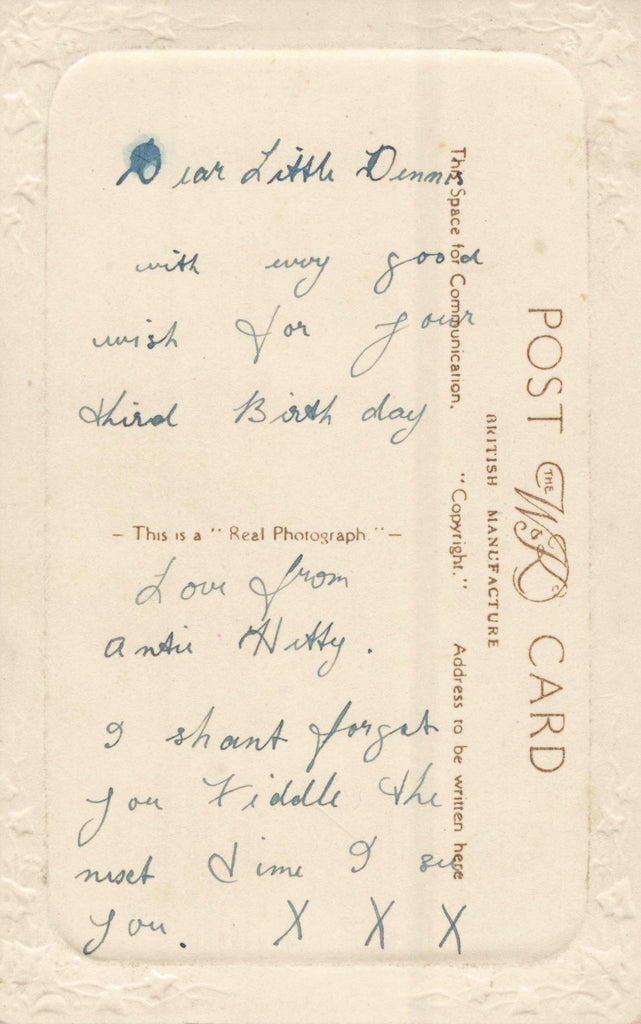 Dear Little Dennis
with every good
wish for your
third Birth day
– This is a "Real Photograph." –
Love from
Antie Hitty.
I shant forget
you Kiddle the
nwset time I see
you. X X X
This Space for Communication. "Copyright." Address to be written here
BRITISH MANUFACTURE
POST THE W&K CARD